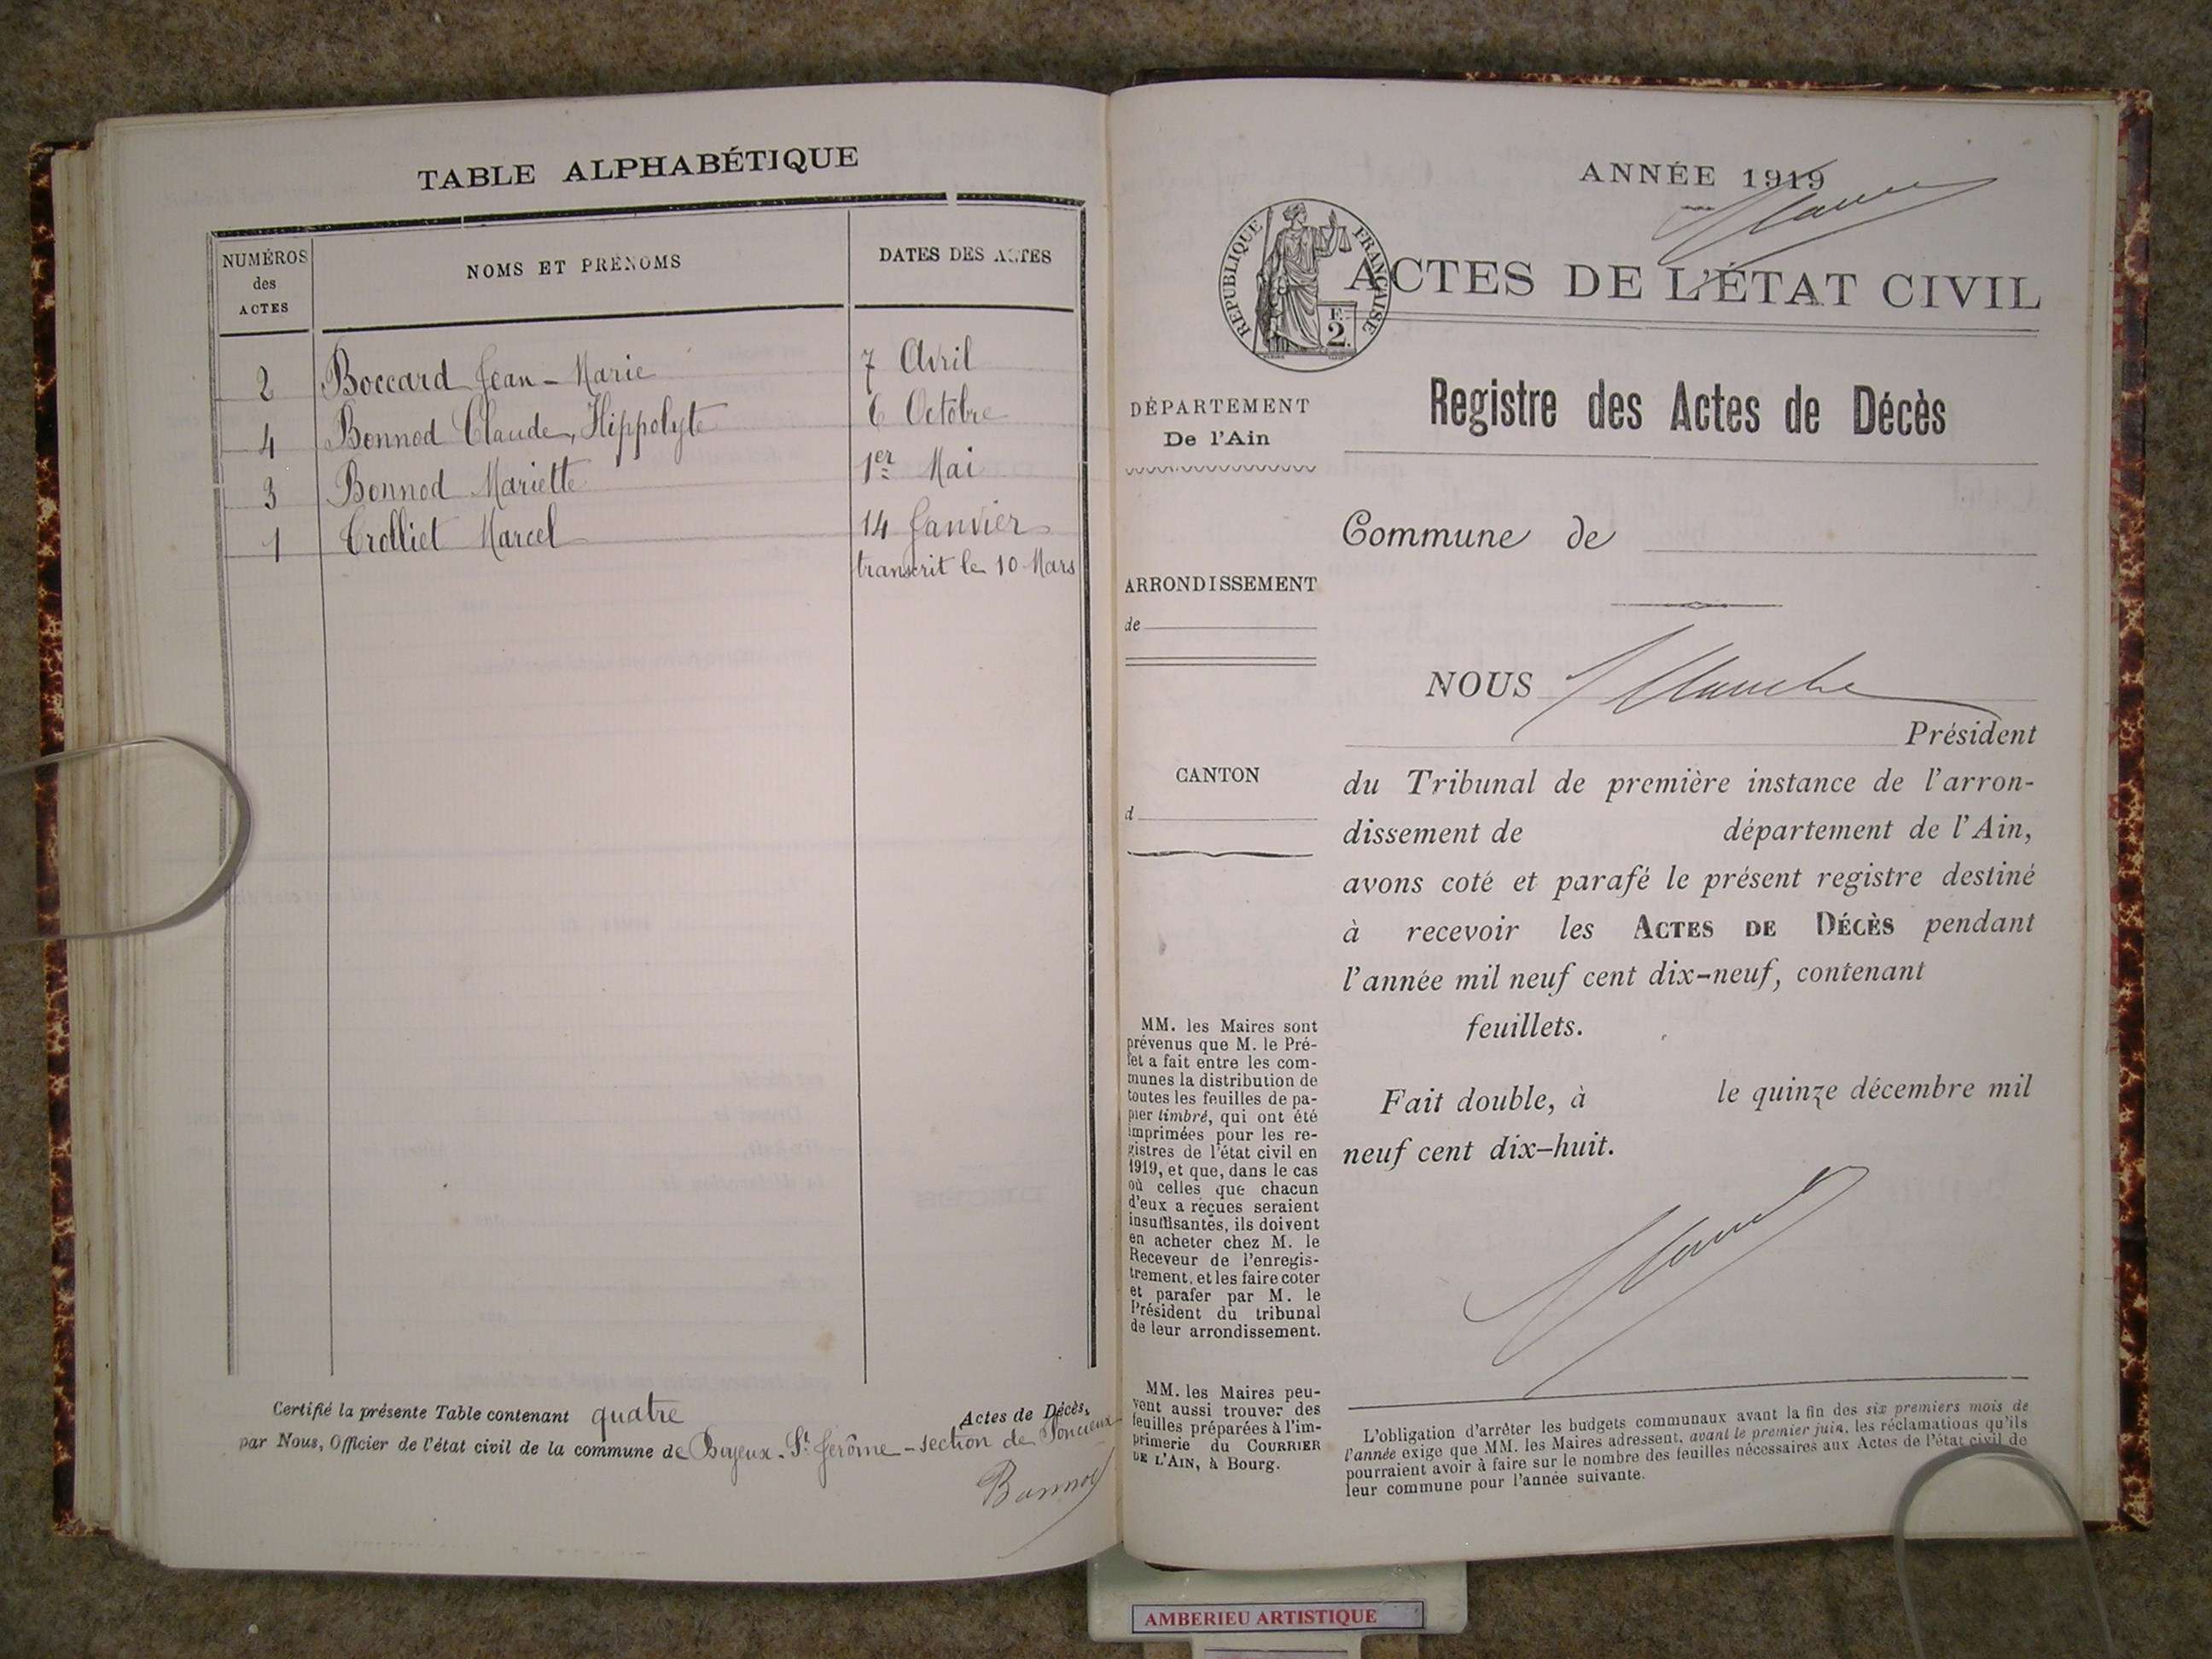 TABLE ALPHABÉTIQUE
NUMÉROS
des
ACTES
NOMS ET PRÉNOMS
DATES DES ACTES
2 Boccard Jean-Marie 7 Avril
4 Bonnod Claude, Hippolyte 6 Octobre
3 Bonnod Mariette 1er Mai
1 Trolliet Marcel 14 Janvier
transcrit le 10 Mars
Certifié la présente Table contenant quatre Actes de Décès,
par Nous, Officier de l'état civil de la commune de Boyeux-St Jérôme-section de Poncieux
Bonnod
ANNÉE 1919
RÉPUBLIQUE FRANÇAISE
F.
2.
ACTES DE L'ÉTAT CIVIL
DÉPARTEMENT
De l'Ain
ARRONDISSEMENT
de
CANTON
d
MM. les Maires sont
prévenus que M. le Pré-
fet a fait entre les com-
munes la distribution de
toutes les feuilles de pa-
pier timbré, qui ont été
imprimées pour les re-
gistres de l'état civil en
1919, et que, dans le cas
où celles que chacun
d'eux a reçues seraient
insuffisantes, ils doivent
en acheter chez M. le
Receveur de l'enregis-
trement, et les faire coter
et parafer par M. le
Président du tribunal
de leur arrondissement.
MM. les Maires peu-
vent aussi trouver des
feuilles préparées à l'im-
primerie du COURRIER
DE L'AIN, à Bourg.
Registre des Actes de Décès
Commune de
NOUS
Président
du Tribunal de première instance de l'arron-
dissement de département de l'Ain,
avons coté et parafé le présent registre destiné
à recevoir les ACTES DE DÉCÈS pendant
l'année mil neuf cent dix-neuf, contenant
feuillets.
Fait double, à le quinze décembre mil
neuf cent dix-huit.
L'obligation d'arrêter les budgets communaux avant la fin des six premiers mois de
l'année exige que MM. les Maires adressent, avant le premier juin, les réclamations qu'ils
pourraient avoir à faire sur le nombre des feuilles nécessaires aux Actes de l'état civil de
leur commune pour l'année suivante.
AMBERIEU ARTISTIQUE